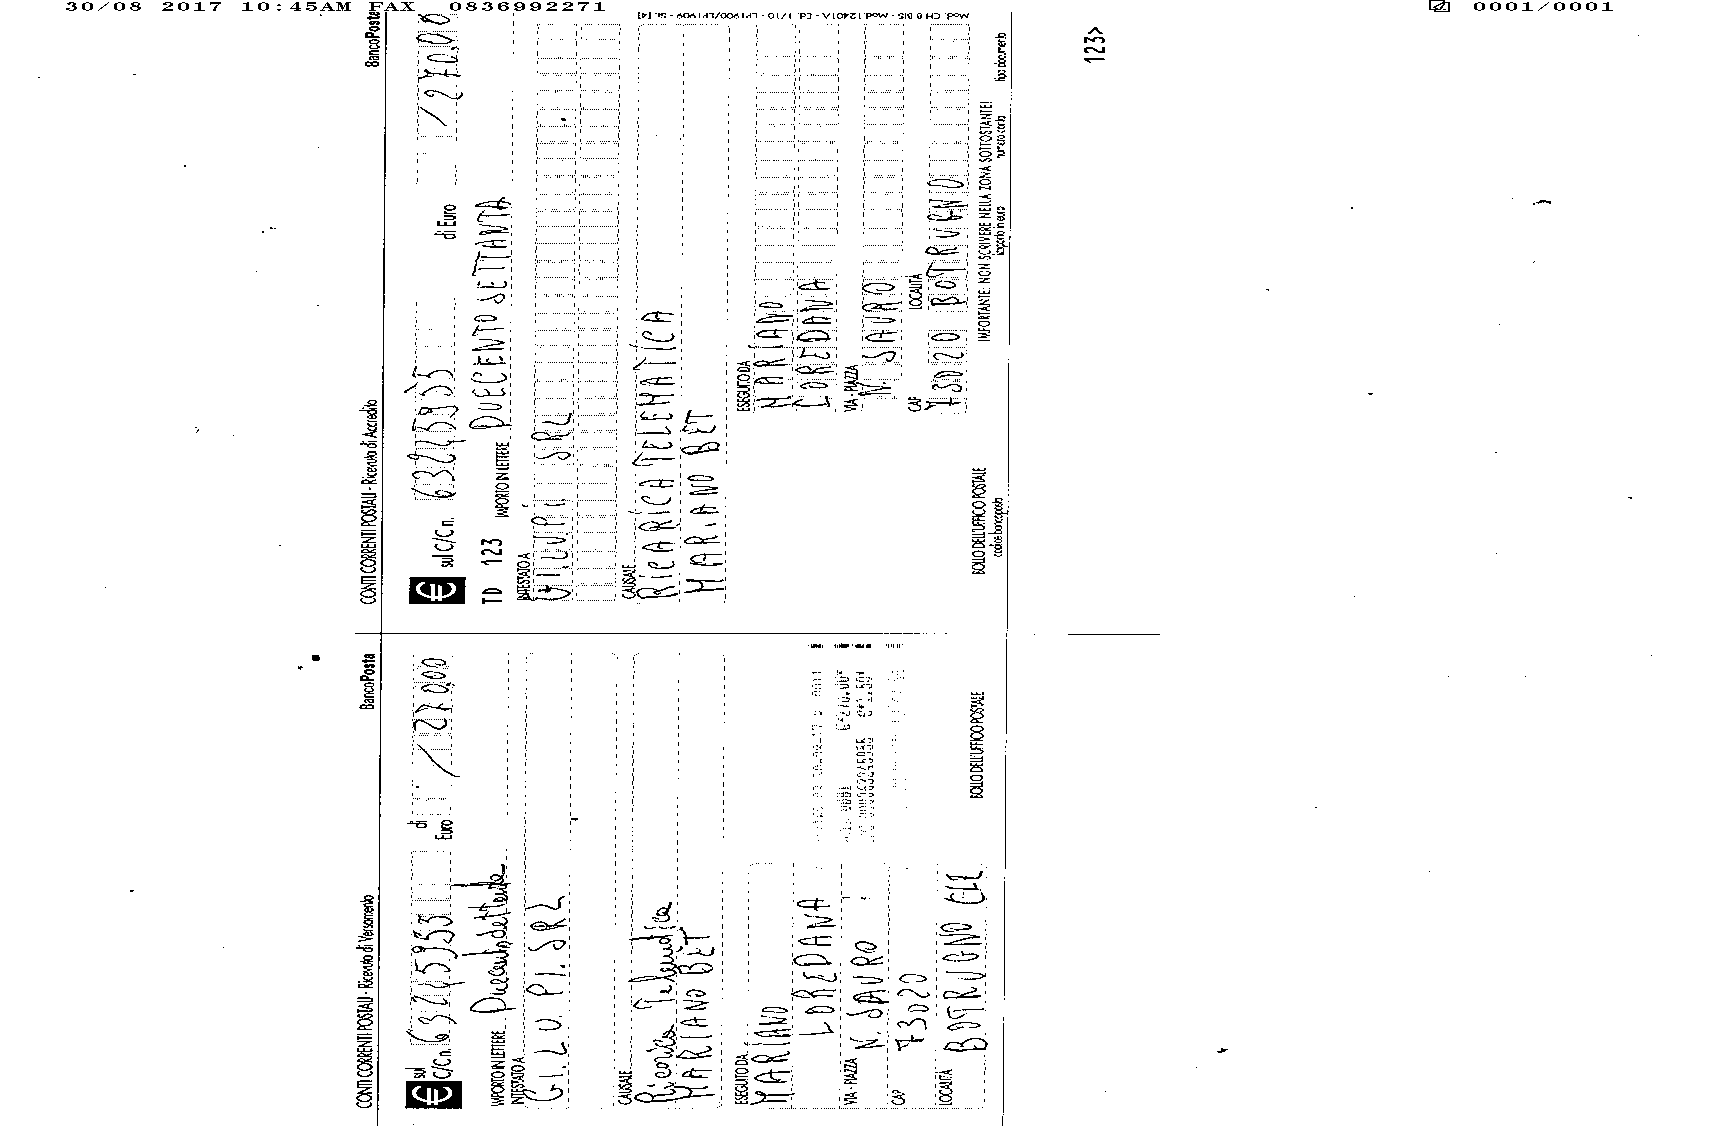 30/08 2017 10:45AM FAX 0836992271
0001/0001
CONTI CORRENTI POSTALI - Ricevuta di Versamento
BancoPosta
€ sul C/C n. 63245953 di Euro / 270,00
IMPORTO IN LETTERE Duecentosettanta
INTESTATO A
GI.LU.PI. SRL
CAUSALE
Ricarica Telematica
MARIANO BET
ESEGUITO DA
MARIANO
LOREDANA
VIA - PIAZZA N. SAURO
CAP 73020
LOCALITÀ BOTRUGNO (LE
BOLLO DELL'UFFICIO POSTALE
CONTI CORRENTI POSTALI - Ricevuta di Accredito
BancoPosta
€ sul C/C n. di Euro / 270,00
TD 123 IMPORTO IN LETTERE DUECENTO SETTANTA
INTESTATO A
GI.LU.PI SRL
CAUSALE
RICARICA TELEMATICA
MARIANO BET
ESEGUITO DA
MARIANO
LOREDANA
VIA - PIAZZA
N SAURO
CAP LOCALITÀ
73020 BOTRUGNO
IMPORTANTE: NON SCRIVERE NELLA ZONA SOTTOSTANTE!
BOLLO DELL'UFFICIO POSTALE
codice bancoposta importo in euro numero conto tipo documento
123>